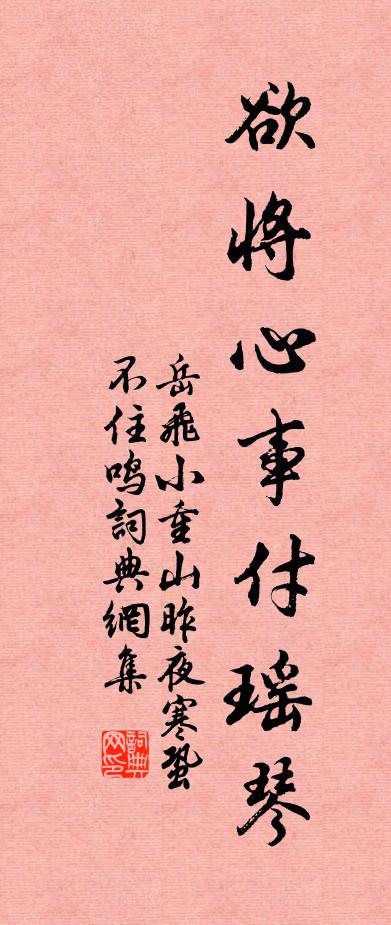 欲將心事付瑶琴
岳飛小重山昨夜寒蛩
不住鳴詞典網集
詞典
网印